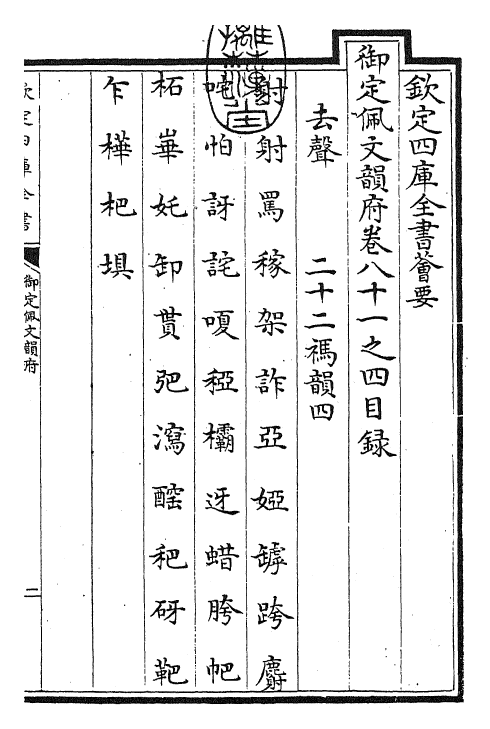 欽定四庫全書薈要
御定佩文韻府卷八十一之四目録
去聲　二十二禡韻四
射罵稼架詐亞婭罅跨麝
怕訝詫嗄稏欛迓蜡胯帊
柘崋奼卸貰弝瀉醡秅砑靶
乍樺杷塤
欽定四庫全書
御定佩文韻府
二